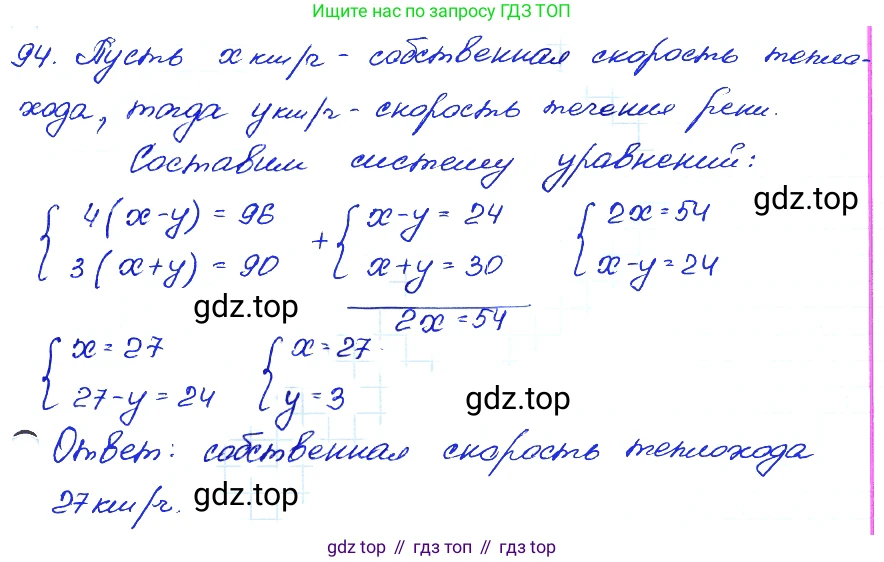 Ищите нас по запросу ГДЗ ТОП
94. Пусть x км/ч - собственная скорость тепло-
хода, тогда y км/ч - скорость течения реки.
Составим систему уравнений:
gdz.top
4(x-y) = 96 + x-y = 24 2x = 54
3(x+y) = 90 x+y = 30 x-y = 24
gdz.top
2x = 54
x = 27 x = 27
27-y = 24 y = 3
gdz.top
Ответ: собственная скорость теплохода
27 км/ч.
gdz.top
gdz top // гдз топ // гдз top